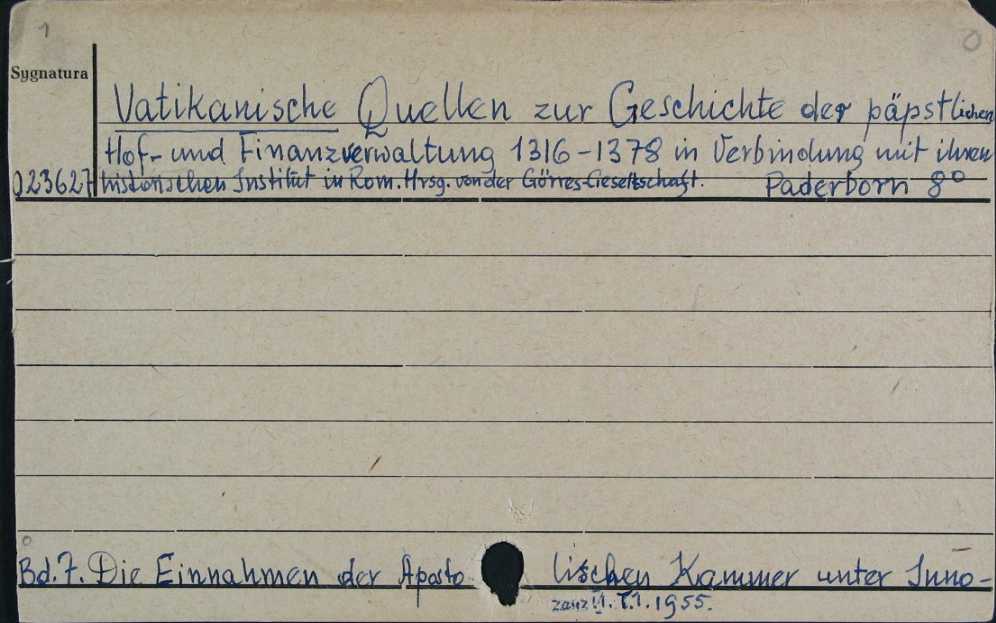 1
0
Sygnatura
Vatikanische Quellen zur Geschichte der päpstlichen
Hof- und Finanzverwaltung 1316-1378 in Verbindung mit ihrem
023627 historischen Institut in Rom. Hrsg. von der Görres-Gesellschaft. Paderborn 8°
Bd. 7. Die Einnahmen der Aposto lischen Kammer unter Inno-
zenz VI. T.1. 1955.